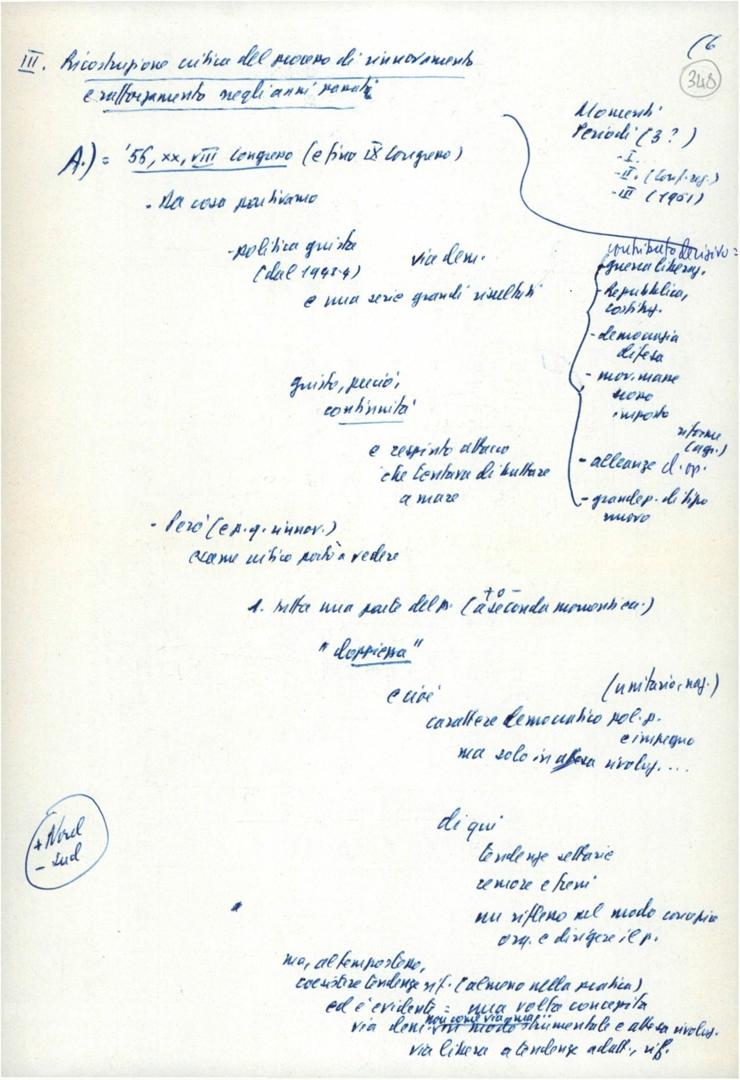 16
348
III. Ricostruzione critica del processo di rinnovamento
e rafforzamento negli anni passati
Momenti
Periodi (3?)
- I.
- II. (Conf. reg.)
- III (1961)
A.) = '56, XX, VIII Congresso (e fino IX Congresso)
- Da cosa partivamo
- politica giusta
(dal 1943-4)
via dem.
e una serie grandi risultati
contributo decisivo =
- guerra liberaz.
- Repubblica,
costituz.
- democrazia
difesa
- mov. masse
hanno
imposto
riforme
(agr.)
- alleanze cl. op.
- grande p. di tipo
nuovo
giusta, perciò,
continuità
e respinto attacco
che tentava di buttare
a mare
- Però (e p. q. rinnov.)
esame critico portò a vedere
1. tutta una parte del p. (a seconda momenti ca.)
+ o -
"doppiezza"
e cioè
(unitario, naz.)
carattere democratico pol. p.
e impegno
ma solo in attesa rivoluz. ...
+ Nord
- Sud
di qui
tendenze settarie
remore e freni
un riflesso nel modo concepire
org. e dirigere il p.
ma, al tempo stesso,
coesistere tendenze rif. (almeno nella pratica)
ed è evidente = una volta concepita
via dem. in modo strumentale e attesa rivoluz.
non come via ma
via libera a tendenze adatt., rif.